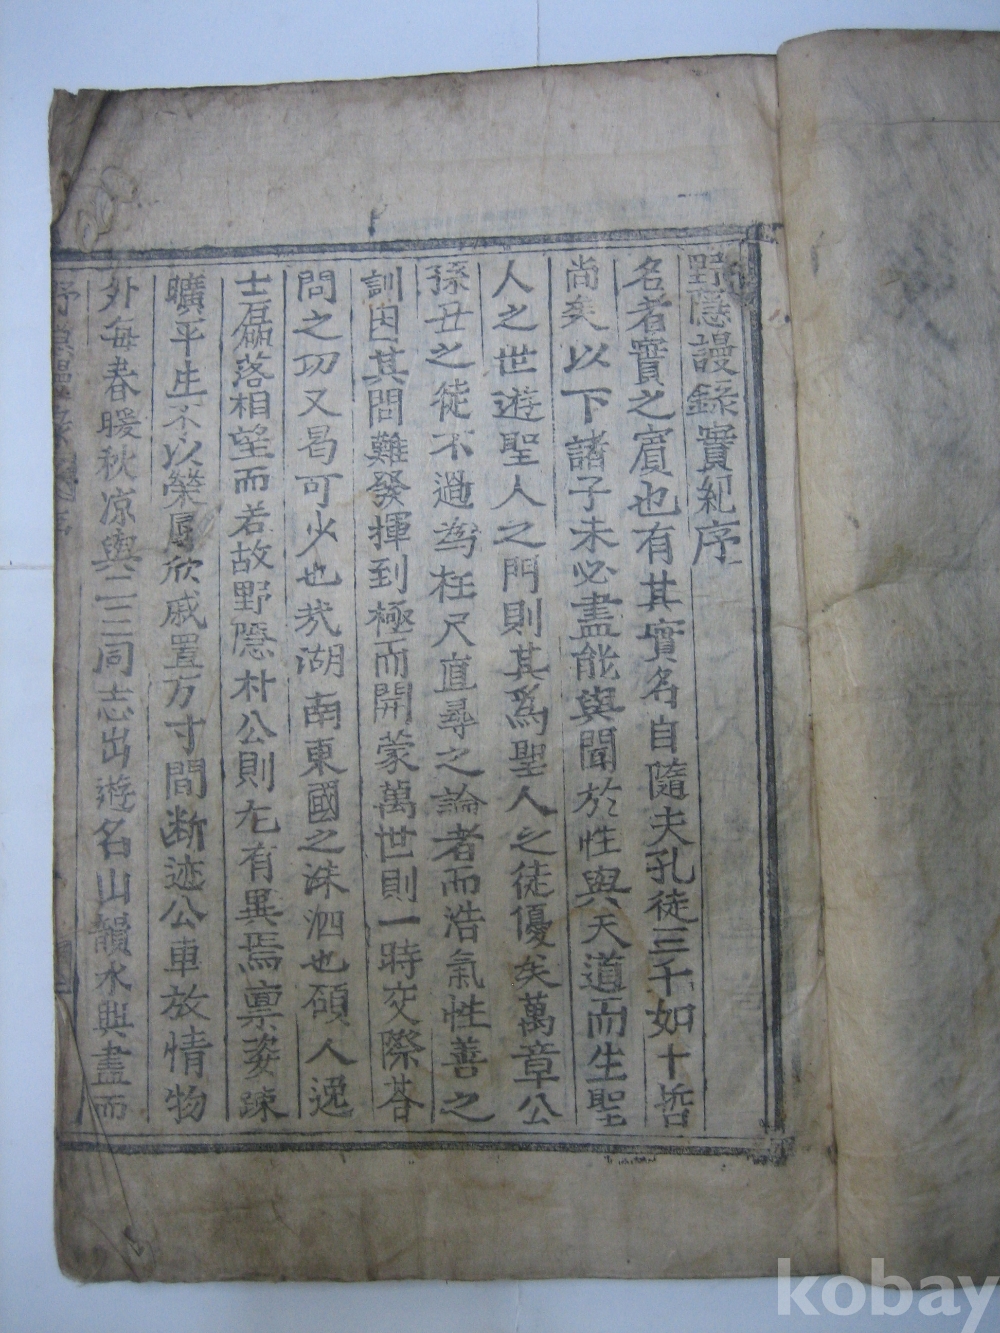 野隱謾錄實紀序
名者實之賓也有其實名自隨夫孔徒三千如十哲
尚矣以下諸子未必盡能與聞於性與天道而生聖
人之世遊聖人之門則其爲聖人之徒優矣萬章公
孫丑之徒不過為枉尺直尋之論者而浩氣性善之
訓因其問難發揮到極而開蒙萬世則一時交際答
問之功又曷可少也㢤湖南東國之洙泗也碩人逸
士磊落相望而若故野隱朴公則尤有異焉禀姿踈
曠平生不以榮辱欣戚置方寸間断迹公車放情物
外每春暖秋凉與二三同志出遊名山韻水興盡而
謾錄 序
kobay